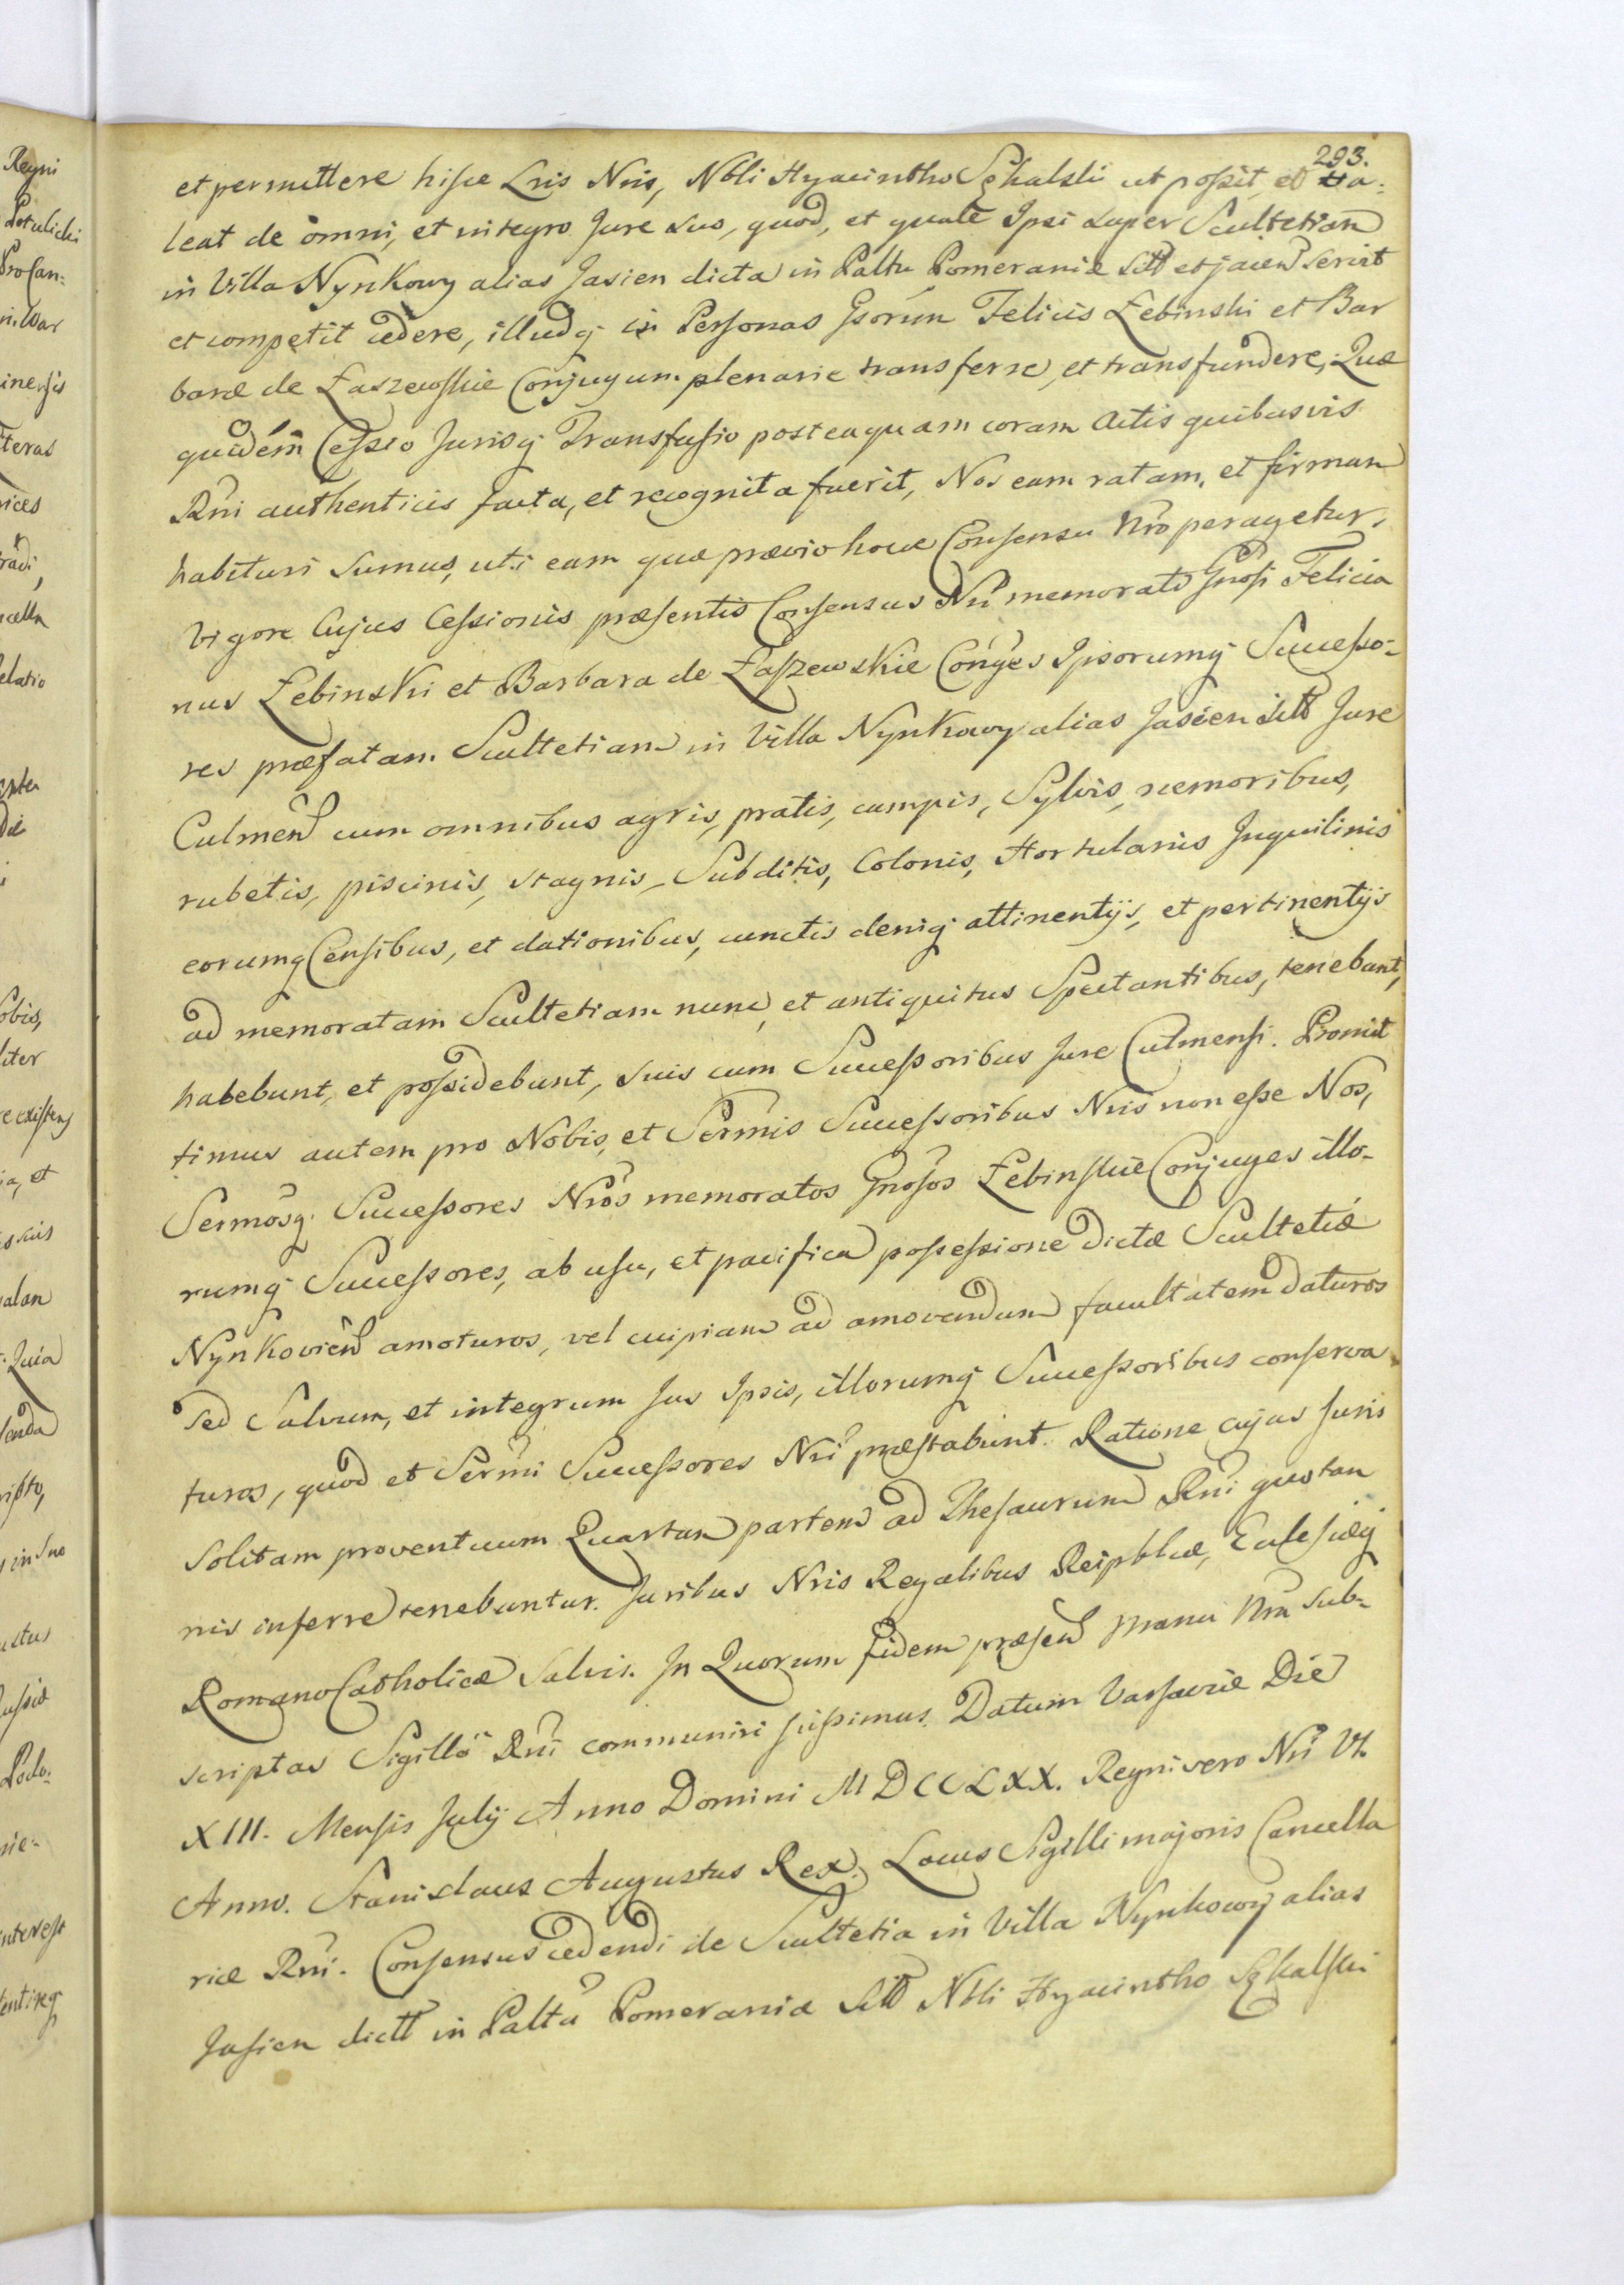 293.
et permittere hisce Lris Nris, Nbli Hyacintho Szkalski ut possit, et va-
leat de omni, et integro Jure suo, quod, et quale Ipsi super Scultetiam
in Villa Nynkowy alias Jasien dicta in Palttu Pomeraniæ sitt et jacen servit
et competit cedere, illudq in Personas Gsorum Felicis Łebinski et Bar
baræ de Łaszewskie Conjugum plenarie transferre, et transfundere, Quæ
quidem Cessio Jurisq Transfusio posteaquam coram Actis quibusvis
Rni authenticis facta, et recognita fuerit, Nos eam ratam, et firmam
habituri sumus, uti eam quæ prævio hocce Consensu Nro peragetur,
Vigore Cujus Cessionis præsentis Consensus Nri memorati Gnosi Felicia
nus Łebinski et Barbara de Łaszewskie Conjges Ipsorumq Successo-
res præfatam Scultetiam in Villa Nynkowy alias Jasien sitt Jure
Culmen cum omnibus agris, pratis, campis, Sylvis, nemoribus,
rubetis, piscinis, stagnis, Subditis, Colonis, Hortulanis Inquilinis
eorumq Censibus, et dationibus, cunctis deniq attinentijs, et pertinentijs
ad memoratam Scultetiam nunc, et antiquitus Spectantibus, tenebunt,
habebunt, et possidebunt, suis cum Successoribus Jure Culmensi. Promit
timus autem pro Nobis, et Sermis Successoribus Nris non esse Nos,
Sermosq. Successores Nros memoratos Gnosos Łebinskie Conjuges illo-
rumq Successores, ab usu, et pacifica possessione dictæ Scultetiæ
Nynkovien amoturos, vel cuipiam ad amovendum facultatem daturos
sed Salvum, et integrum Jus Ipsis, illorumq Successoribus conserva
turos, quod et Sermi Successores Nri præstabunt. Ratione cujus Juris
solitam proventuum Quartam partem ad Thesaurum Rni quotan
nis inferre tenebuntur. Juribus Nris Regalibus Reipblcæ, Ecclesiæq
Romano Catholicæ Salvis. In Quorum fidem præsen Manu Nra sub-
scriptas Sigillo Rni communiri jussimus. Datum Varsaviæ Die
XIII. Mensis Julij Anno Domini MDCCLXX. Regni vero Nri VI.
Anno. Stanislaus Augustus Rex. Locus Sigilli majoris Cancella
riæ Rni. Consensus cedendi de Scultetia in Villa Nynkowy alias
Jasien dictt in Palttu Pomeraniæ sitt Nbli Hyacintho Szkalski